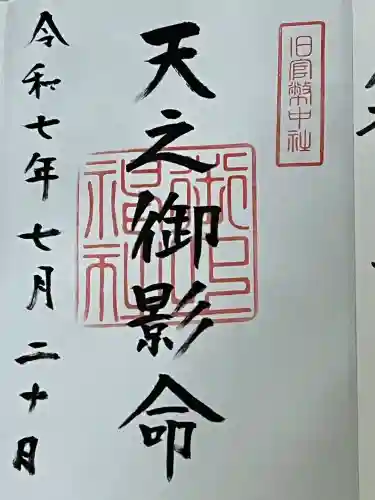 旧官幣中社
天之御影命
令和七年七月二十日